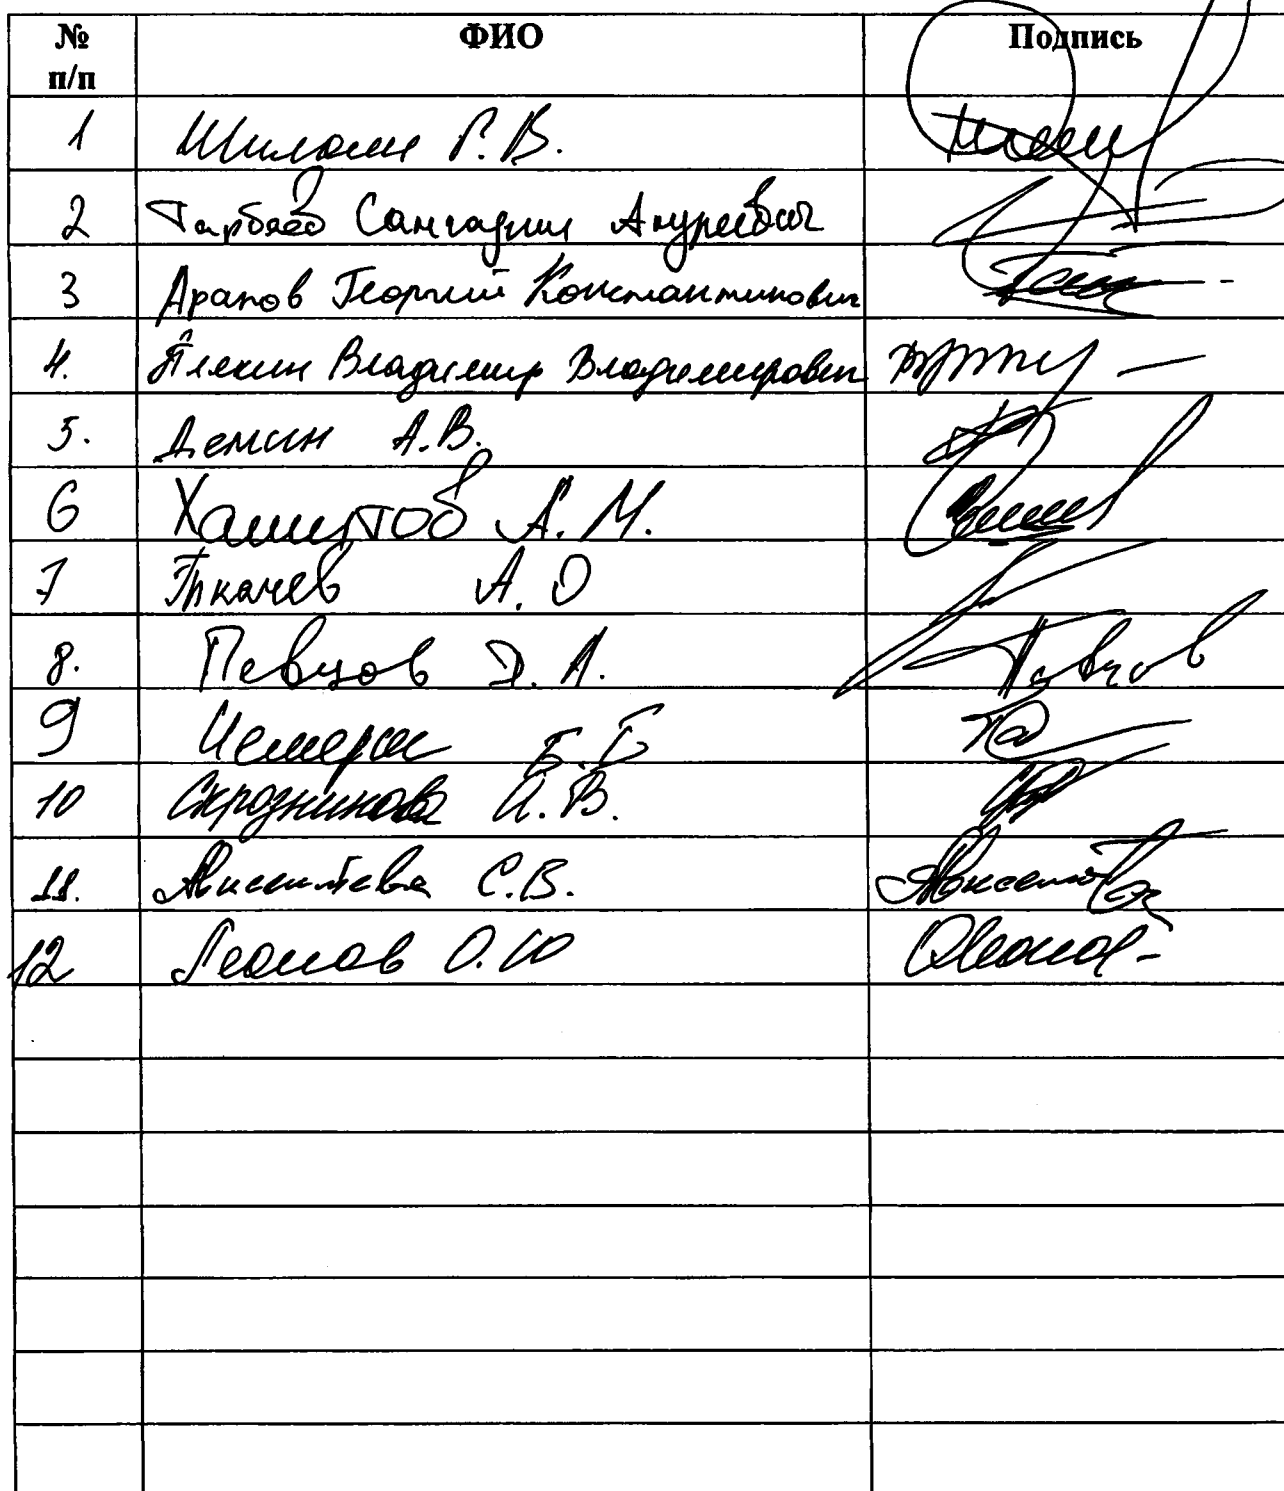 № п/п ФИО Подпись
1 Шилкин Г.В.
2 Тарбаев Сангаджи Андреевич
3 Арапов Георгий Константинович
4. Плякин Владимир Владимирович
5. Демин А.В.
6 Хамитов А.М.
7 Ткачев А.О
8. Певцов Д.А. Певцов
9 Б.Б
10 Скрозникова И.В.
11. Авксентьева С.В.
12 Леонов О.Ю Леонов